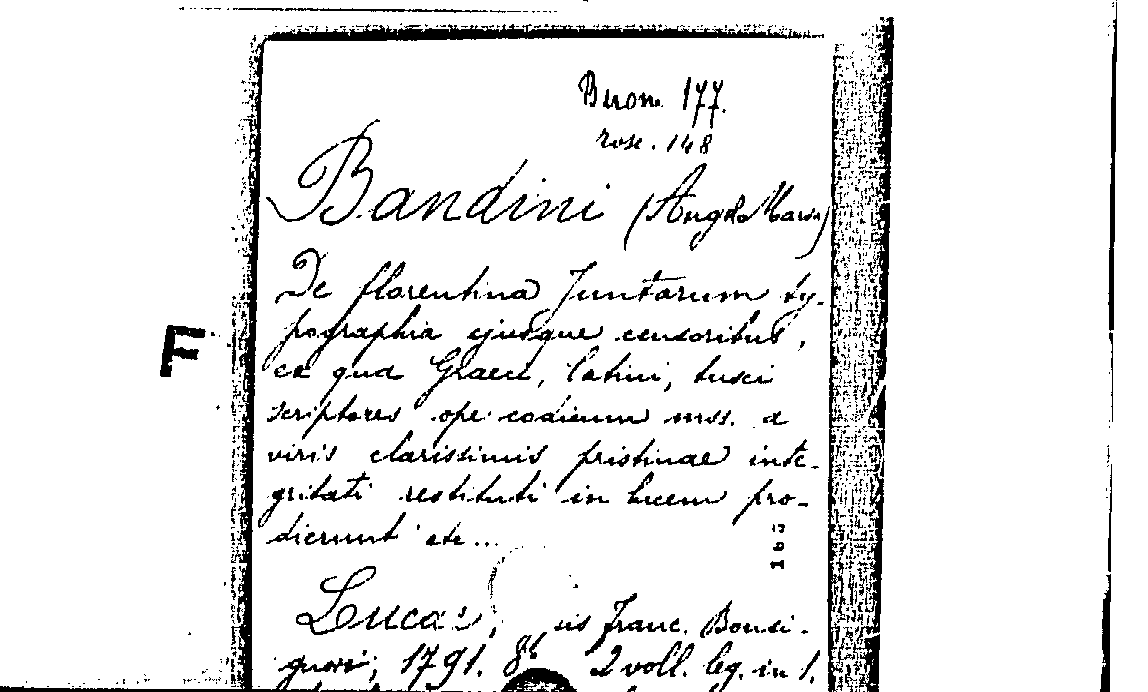 Buon. 177.
rose. 148
Bandini (Angelo Maria)
De florentina Juntarum ty-
pographia ejusque censoribus,
ex qua Graeci, latini, tusci
scriptores ope codicum mss. a
viris clarissimis pristinae inte-
gritati restituti in lucem pro-
dierunt etc...
Lucae, is Franc. Bonsi-
gnori, 1791. 8º, 2 voll. leg. in 1.
F